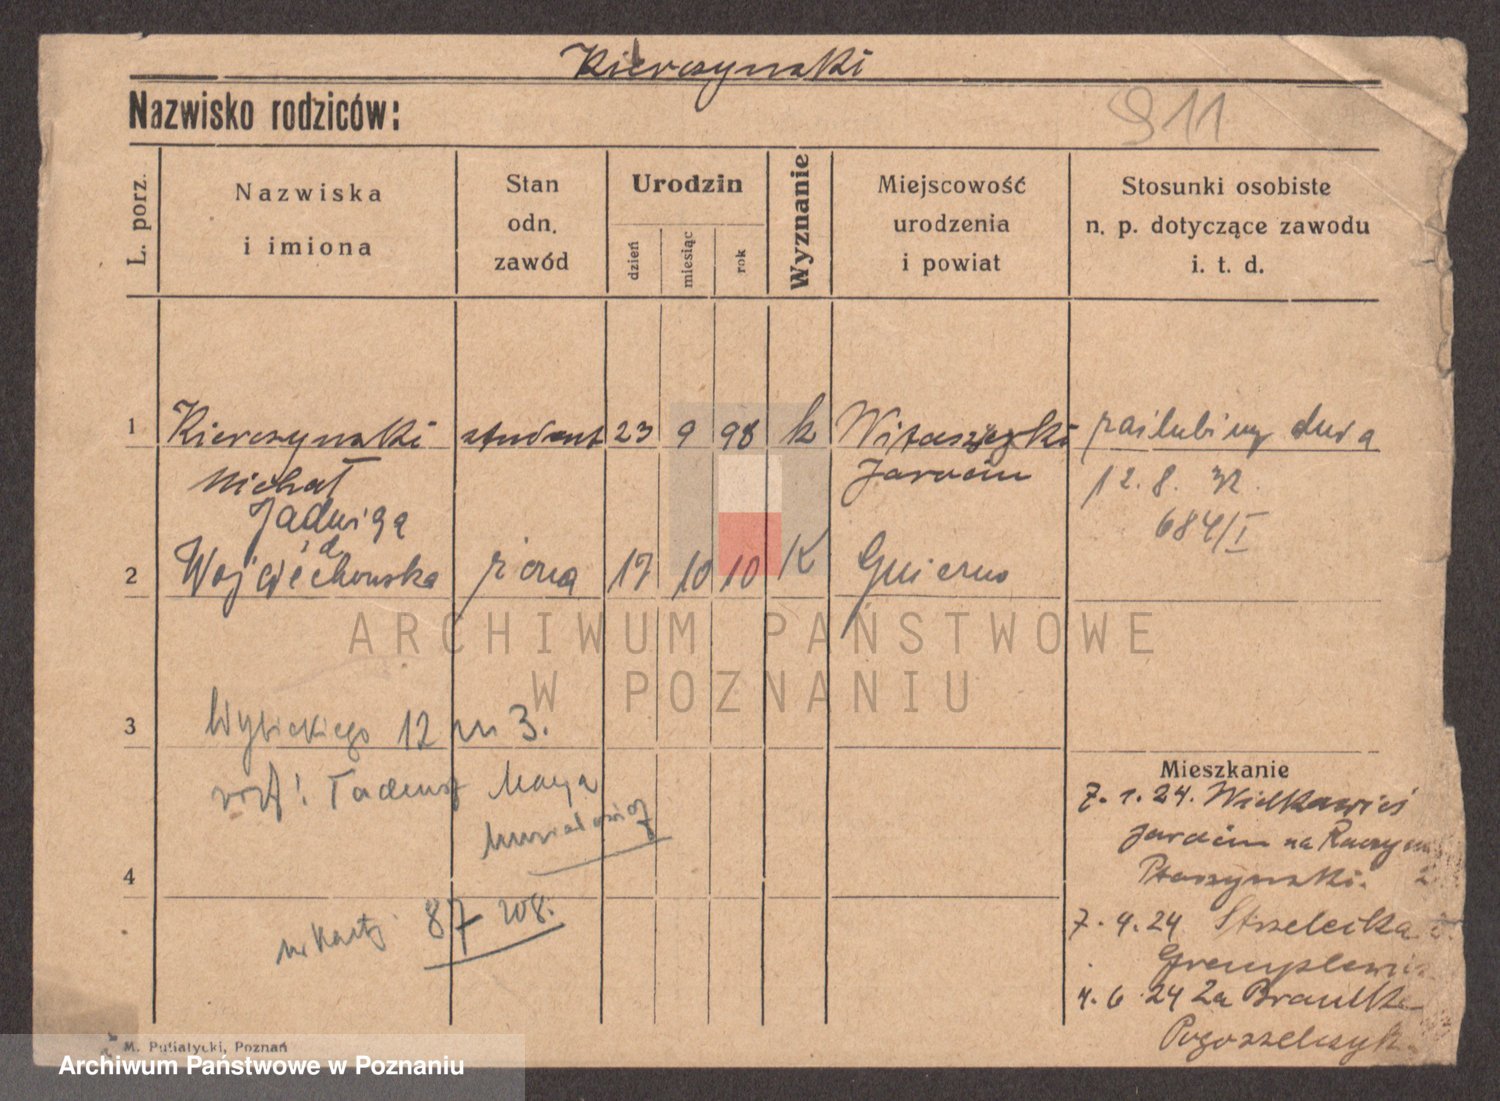 Kierczynski
Nazwisko rodziców:
911
L. porz.
Nazwiska
i imiona
Stan
odn.
zawód
Urodzin
dzień
miesiąc
rok
Wyznanie
Miejscowość
urodzenia
i powiat
Stosunki osobiste
n. p. dotyczące zawodu
i. t. d.
1 Kierczynski student 23 9 98 k Witaszyczki zaślubiny dnia
Michał Jarocin 12. 8. 32.
Jadwiga 684/I
2 Wojciechowska żona 17 10 10 K Gniezno
ARCHIWUM PAŃSTWOWE
W POZNANIU
3 Wybickiego 12 m 3.
Tadeusz
4
Mieszkanie
7. 1. 24. Wielkawieś
Jarocin na
Ptaszynski.
7. 4. 24 Strzelecka
4. 6. 24 Za
nr karty 87 208.
M. Putiatycki, Poznań
Archiwum Państwowe w Poznaniu